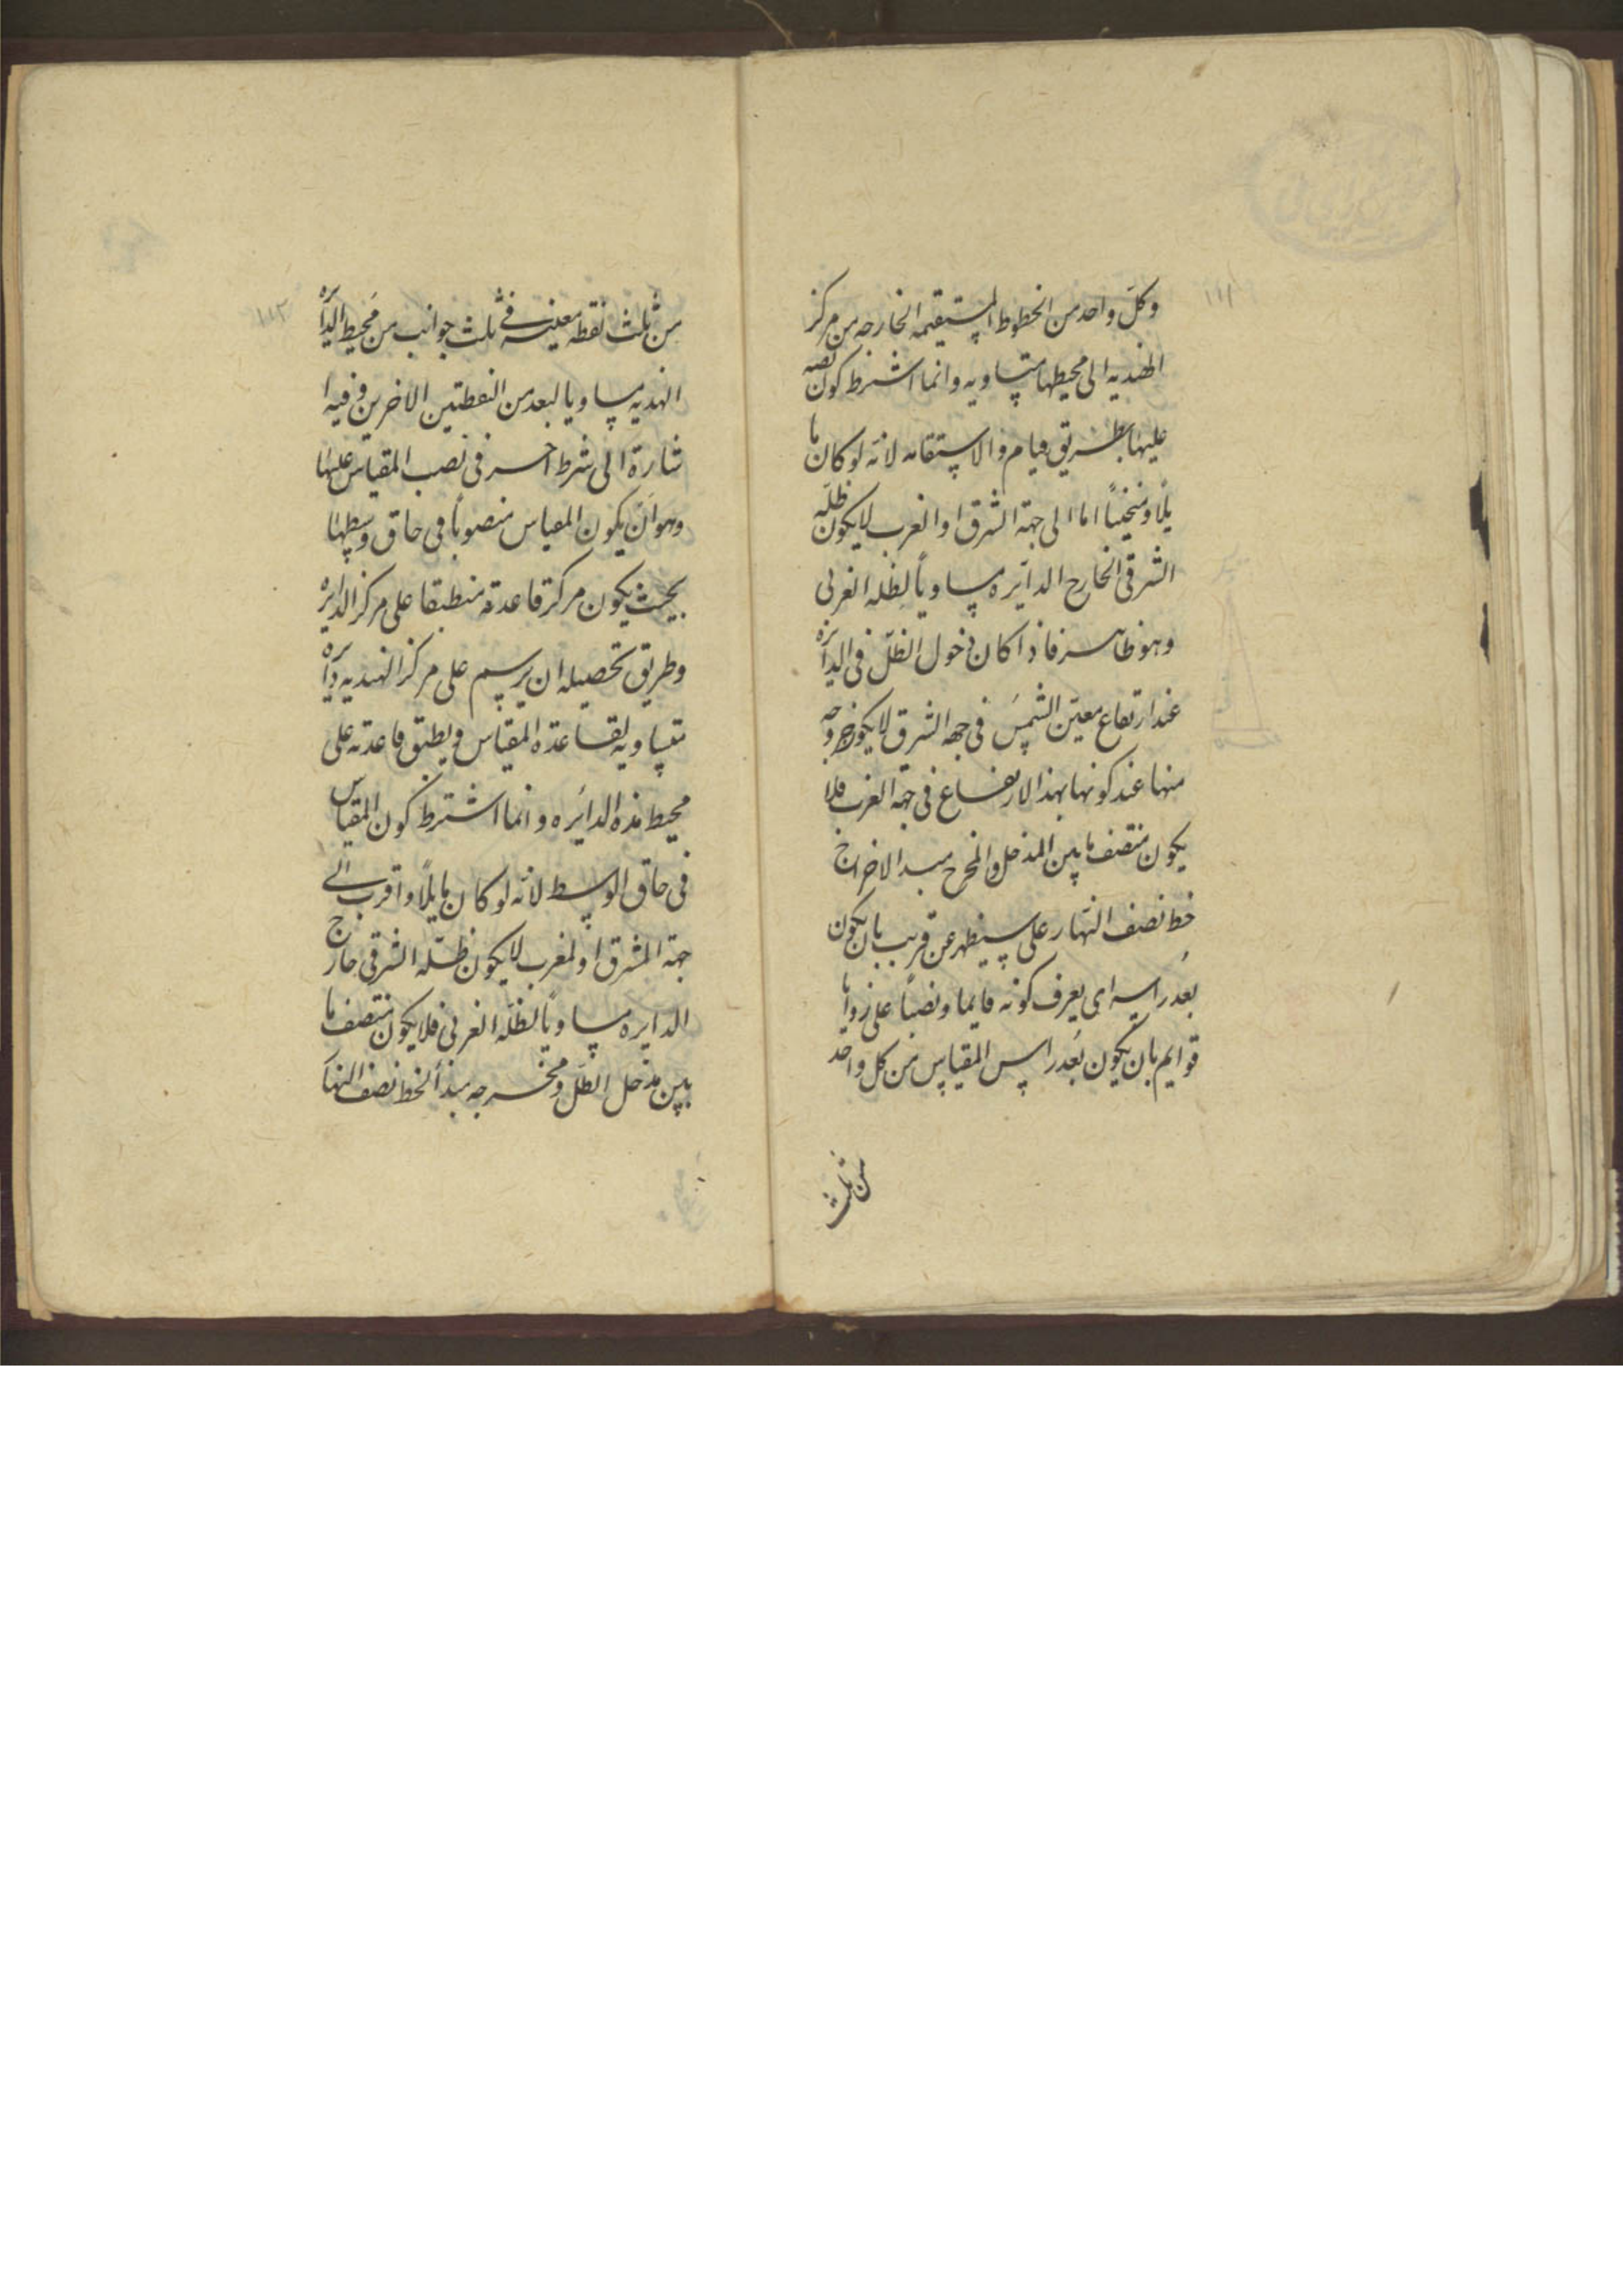 ١١١
وكلّ واحد من الخطوط المستقيمه الخارجه من مركز
الهنديه الى محيطها متساويه وانما اشترط كون نصبه
عليها بطريق قيام والاستقامه لانّه لو كان ما
يلًا ومنحنيًا اما الى جهة الشرق او الغرب لا يكون ظلّه
الشرقى الخارج الدائره مساويًا لظله الغربى
وهو ظاهر فاذا كان دخول الظلّ فى الدائره
عند ارتفاع معيّن الشمس فى جهه الشرق لا يكون خروجه
منها عند كونها بهذا الارتفاع فى جهة الغرب فلا
يكون منتصف ما بين المدخل والمخرج مبدا لاخراج
خط نصف النهار على سيظهر عن قريب بان يكون
بعد راسه اى يعرف كونه قايما ونصبًا على زوايا
قوايم بان يكون بُعد راس المقياس من كل واحد
من ثلث
١١٢
من ثلث نقطه معينه فى ثلث جوانب من مُحيط الدائره
الهنديه مساويا لبعد من النقطتين الاخرين وفيه ا
شارة الى شرط آخر فى نصب المقياس عليها
وهو اَن يكون المقياس منصوباً فى حاق وسطها
بحيث يكون مركز قاعدته منطبقا على مركز الدايره
وطريق تحصيله ان يرسم على مركز الهنديه دايره
متساويه لقاعده المقياس ويطبق قاعدته على
محيط هذه الدائره وانما اشترط كون المقياس
فى حاق الوسط لانّه لو كان مايلًا واقرب الى
جهة المشرق او لمغرب لا يكون ظلّه الشرقى خارج
الدايره مساوياً لظلّه الغربى فلا يكون منتصف ما
بين مدخل الظلّ ومخرجه مبدأ لخط نصف النهار